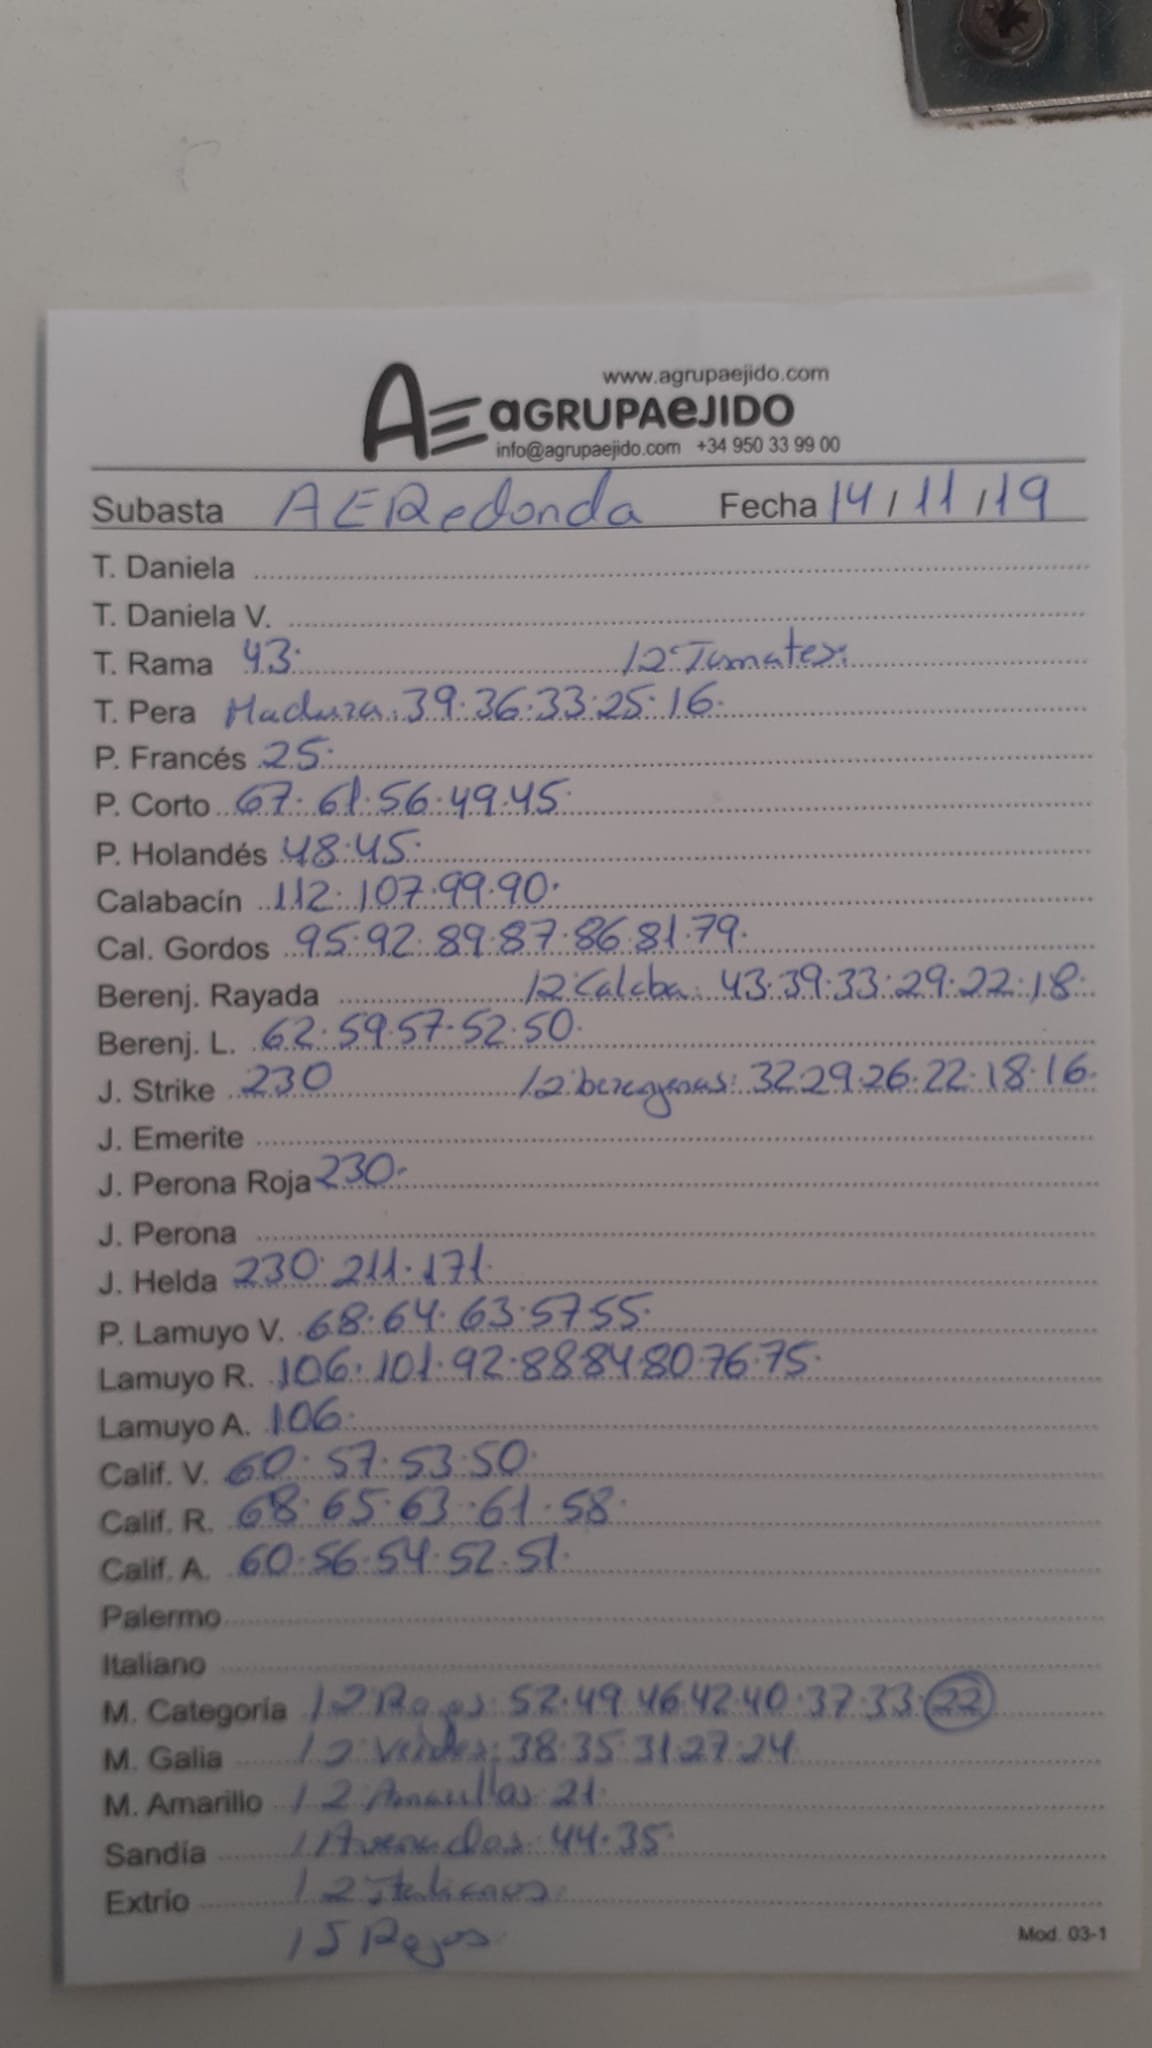 www.agrupaejido.com
AE aGRUPAeJIDO
info@agrupaejido.com +34 950 33 99 00
Subasta AERedonda Fecha 14/11/19
T. Daniela
T. Daniela V.
T. Rama 43. 12 Tomates:
T. Pera Madura. 39.36.33.25.16.
P. Francés 25.
P. Corto 67.61.56.49.45.
P. Holandés 48.45.
Calabacín 112.107.99.90.
Cal. Gordos 95.92.89.87.86.81.79.
Berenj. Rayada 12 Calaba. 43.39.33.29.22.18.
Berenj. L. 62.59.57.52.50.
J. Strike 230 12 berenjenas: 32.29.26.22.18.16.
J. Emerite
J. Perona Roja 230.
J. Perona
J. Helda 230.211.171.
P. Lamuyo V. 68.64.63.57.55.
Lamuyo R. 106.101.92.88.84.80.76.75.
Lamuyo A. 106.
Calif. V. 60.57.53.50.
Calif. R. 68.65.63.61.58.
Calif. A. 60.56.54.52.51.
Palermo
Italiano
M. Categoría 12 Rojos: 52.49.46.42.40.37.33.22
M. Galia 12 Verdes: 38.35.31.27.24
M. Amarillo 12 Amarillos 21.
Sandía 44.35.
Extrío 12 Italianos.
15 Rojos
Mod. 03-1